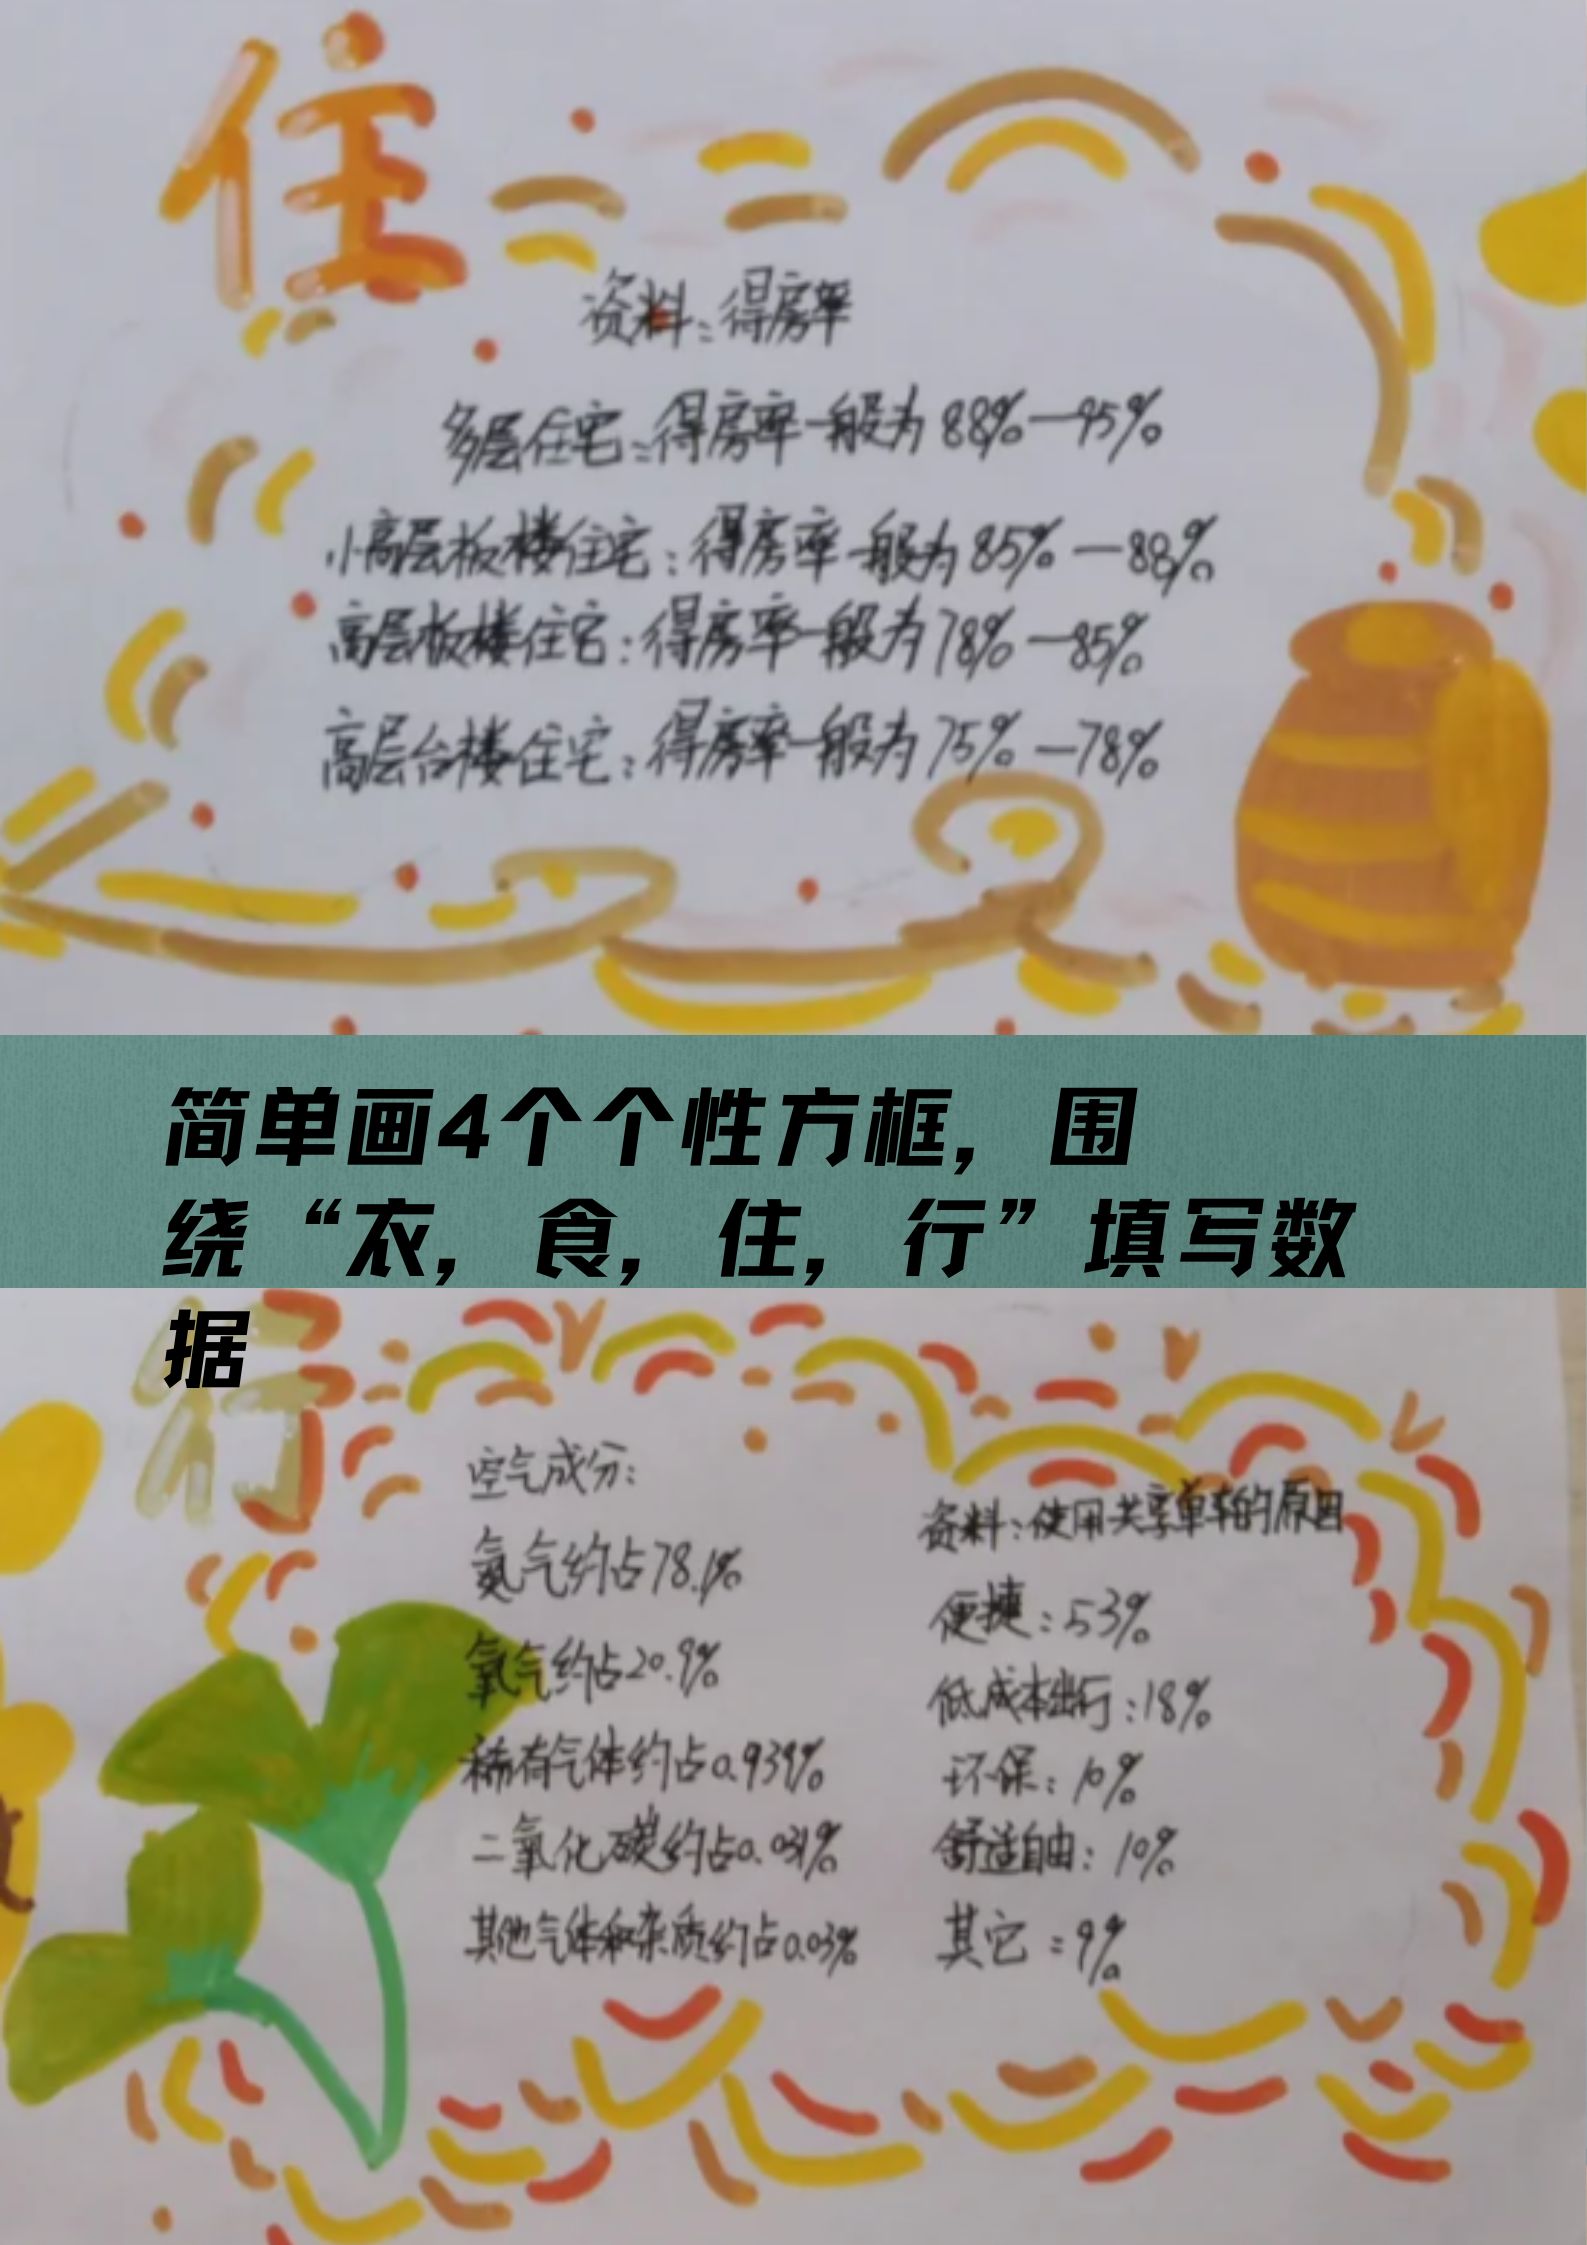 住
资料：得房率
多层住宅：得房率一般为88%—95%
小高层板楼住宅：得房率一般为85%—88%
高层板楼住宅：得房率一般为78%—85%
高层台楼住宅：得房率一般为75%—78%
简单画4个个性方框，围
绕“衣，食，住，行”填写数
据
行
空气成分：
氮气约占78.1%
氧气约占20.9%
稀有气体约占0.939%
二氧化碳约占0.031%
其他气体和杂质约占0.03%
资料：使用共享单车的原因
便捷：53%
低成本出行：18%
环保：10%
舒适自由：10%
其它：9%